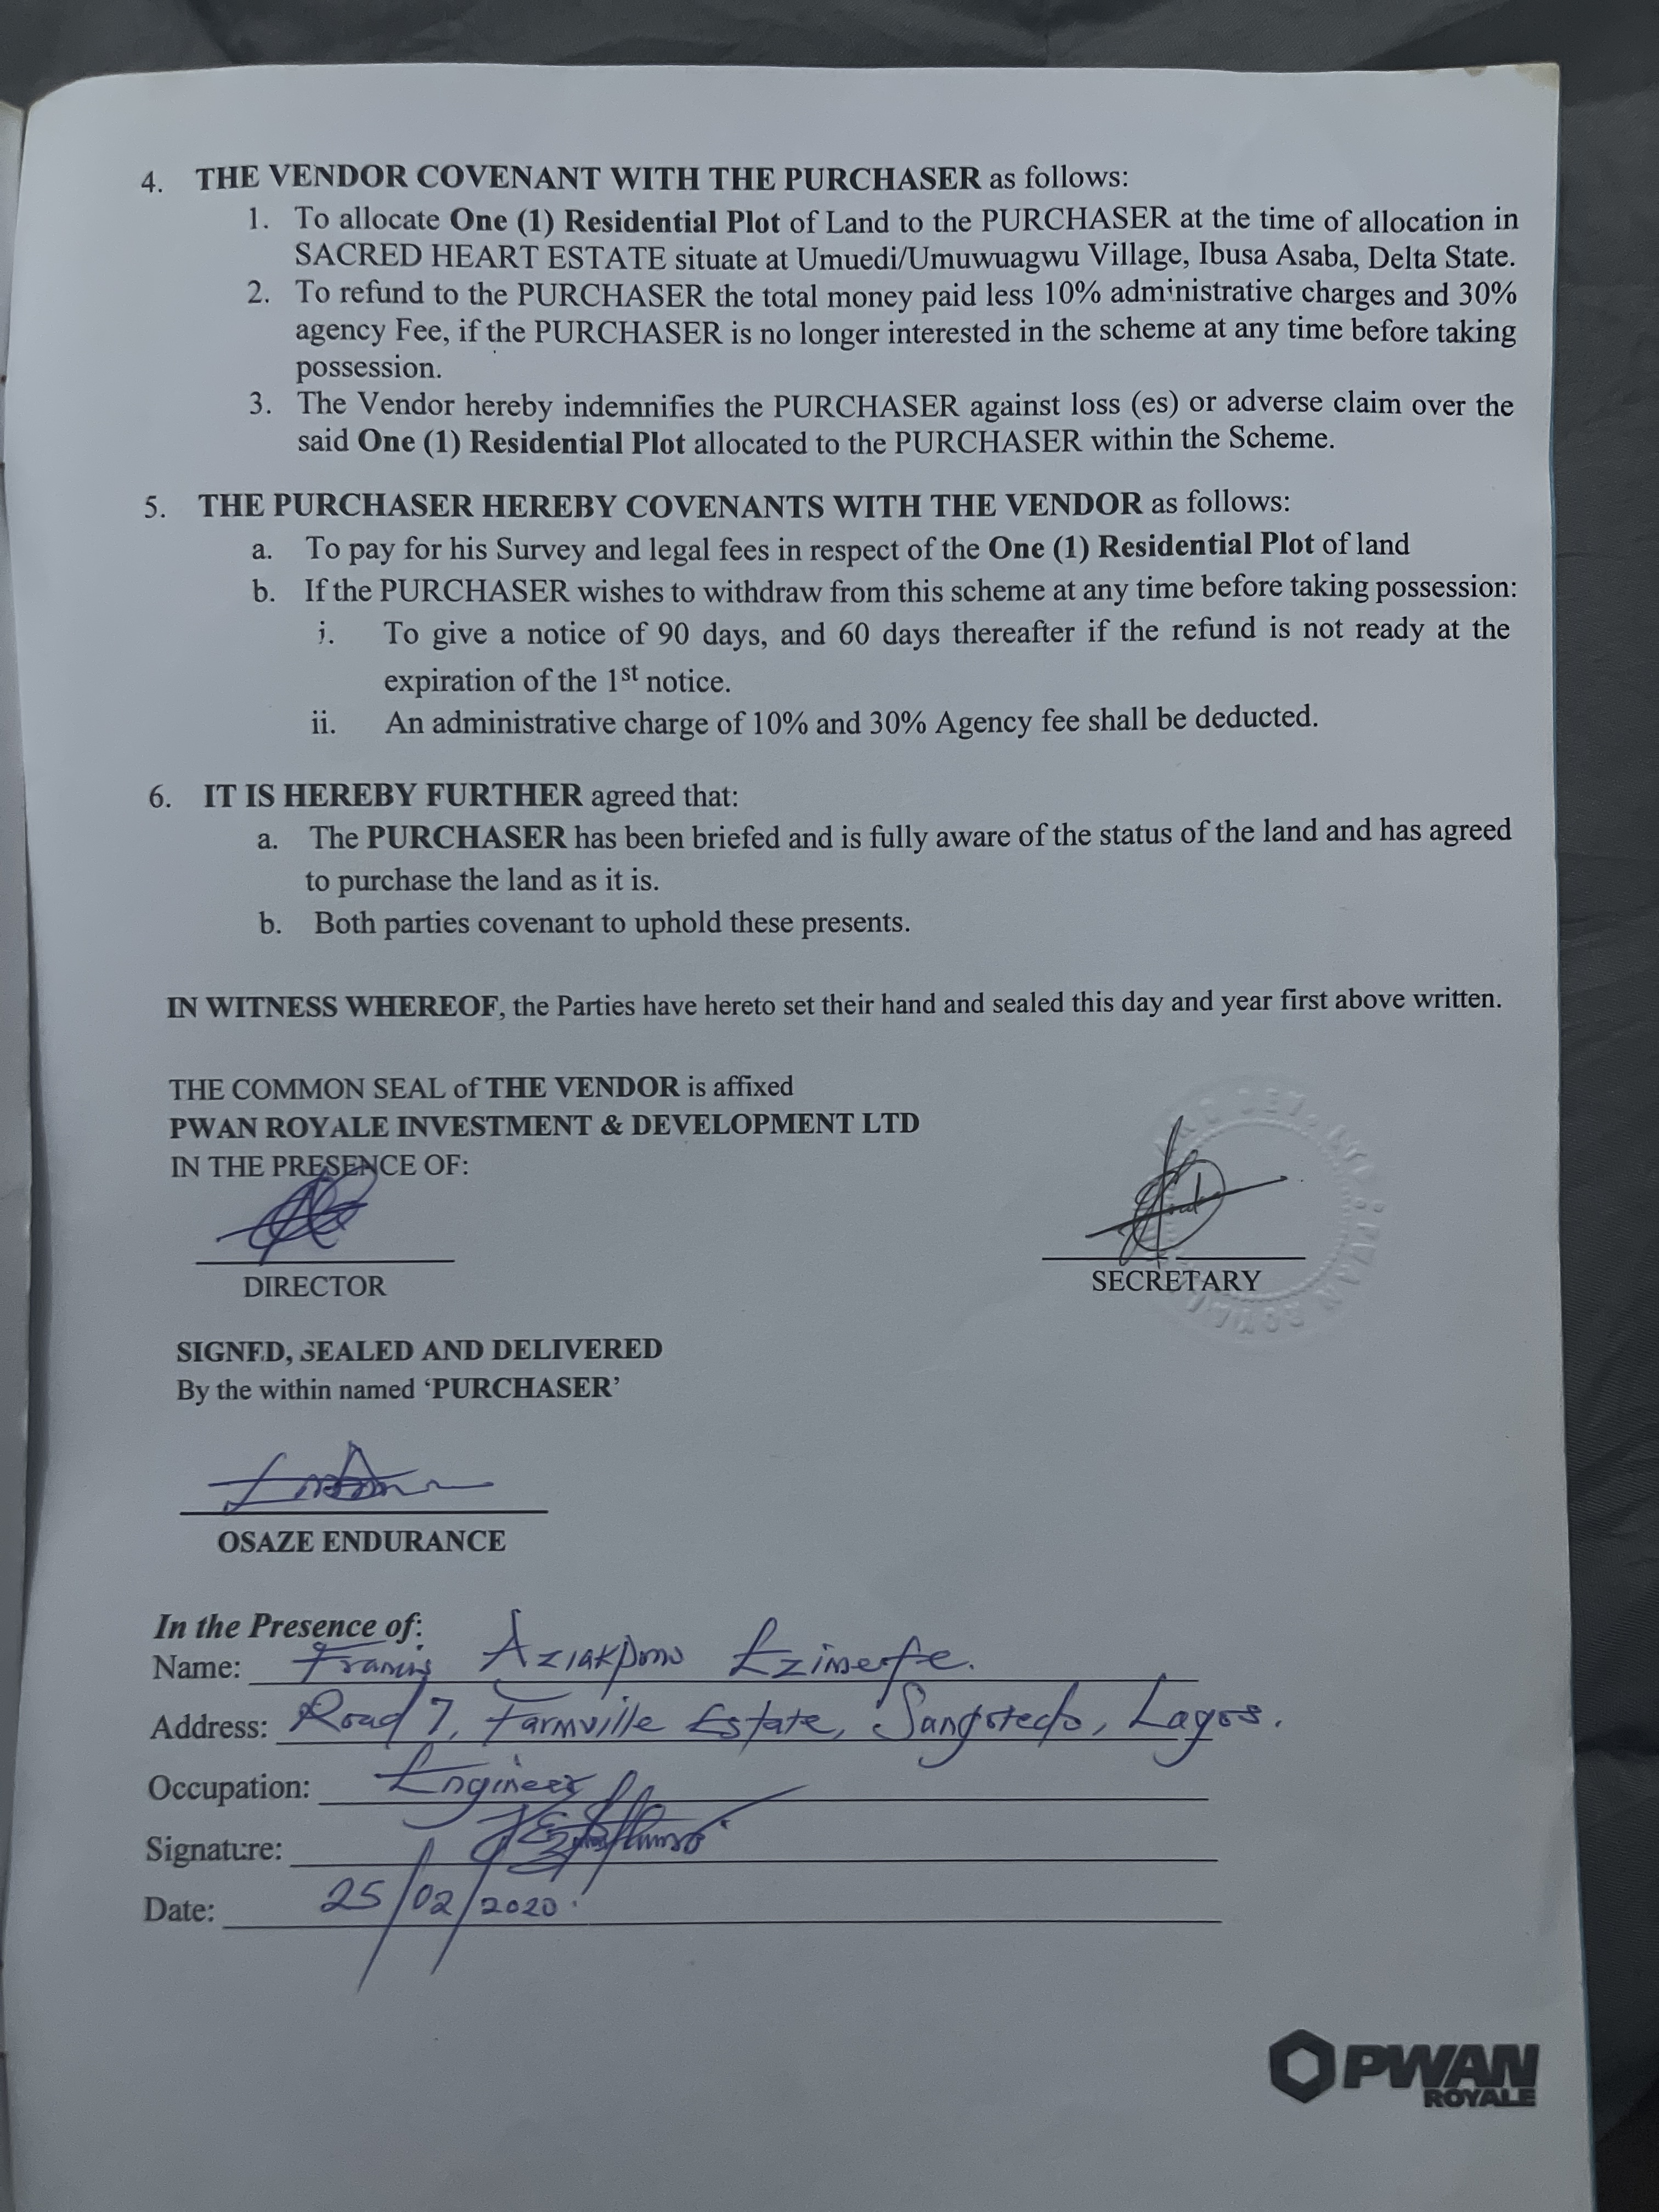 4. THE VENDOR COVENANT WITH THE PURCHASER as follows:
1. To allocate One (1) Residential Plot of Land to the PURCHASER at the time of allocation in
SACRED HEART ESTATE situate at Umuedi/Umuwuagwu Village, Ibusa Asaba, Delta State.
2. To refund to the PURCHASER the total money paid less 10% administrative charges and 30%
agency Fee, if the PURCHASER is no longer interested in the scheme at any time before taking
possession.
3. The Vendor hereby indemnifies the PURCHASER against loss (es) or adverse claim over the
said One (1) Residential Plot allocated to the PURCHASER within the Scheme.
5. THE PURCHASER HEREBY COVENANTS WITH THE VENDOR as follows:
a. To pay for his Survey and legal fees in respect of the One (1) Residential Plot of land
b. If the PURCHASER wishes to withdraw from this scheme at any time before taking possession:
i. To give a notice of 90 days, and 60 days thereafter if the refund is not ready at the
expiration of the 1st notice.
ii. An administrative charge of 10% and 30% Agency fee shall be deducted.
6. IT IS HEREBY FURTHER agreed that:
a. The PURCHASER has been briefed and is fully aware of the status of the land and has agreed
to purchase the land as it is.
b. Both parties covenant to uphold these presents.
IN WITNESS WHEREOF, the Parties have hereto set their hand and sealed this day and year first above written.
THE COMMON SEAL of THE VENDOR is affixed
PWAN ROYALE INVESTMENT & DEVELOPMENT LTD
IN THE PRESENCE OF:
DIRECTOR SECRETARY
SIGNED, SEALED AND DELIVERED
By the within named ‘PURCHASER’
OSAZE ENDURANCE
In the Presence of:
Name: Francis Aziakpono Ezimerfe.
Address: Road 7, Farmville Estate, Sangotedo, Lagos.
Occupation: Engineer
Signature:
Date: 25/02/2020.
PWAN
ROYALE